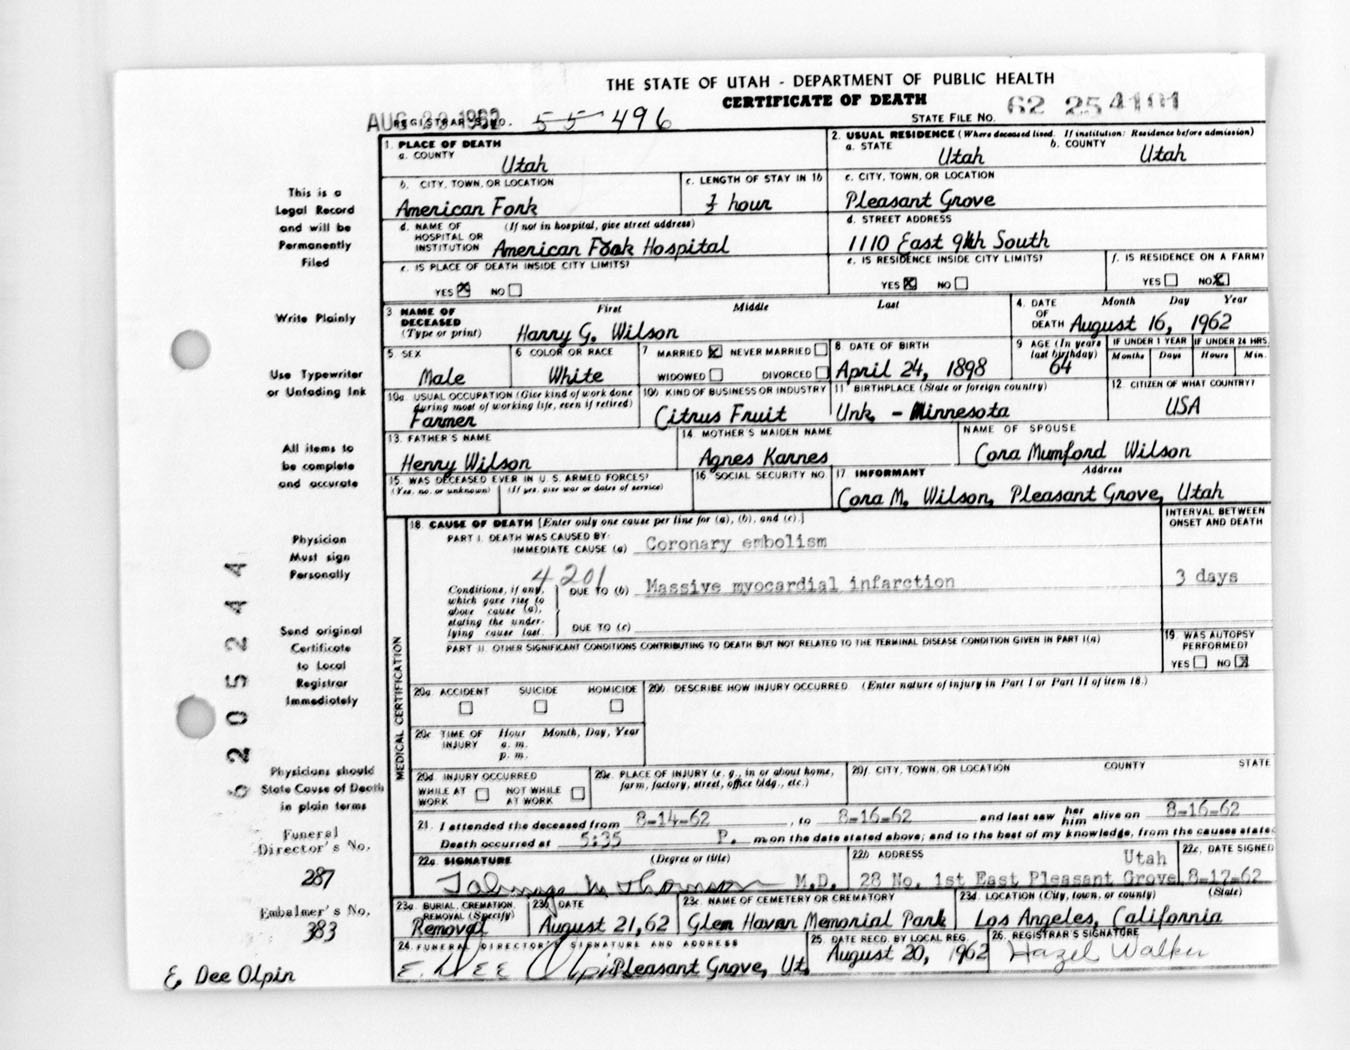 THE STATE OF UTAH - DEPARTMENT OF PUBLIC HEALTH
CERTIFICATE OF DEATH
AUG 1962 REGISTRAR'S NO. 55 496
STATE FILE NO. 62 25 4101
1. PLACE OF DEATH
a. COUNTY
Utah
2. USUAL RESIDENCE (Where deceased lived. If institution: Residence before admission)
a. STATE Utah b. COUNTY Utah
b. CITY, TOWN, OR LOCATION
American Fork
c. LENGTH OF STAY IN 1b
½ hour
c. CITY, TOWN, OR LOCATION
Pleasant Grove
d. NAME OF HOSPITAL OR INSTITUTION (If not in hospital, give street address)
American Fork Hospital
d. STREET ADDRESS
1110 East 9th South
e. IS PLACE OF DEATH INSIDE CITY LIMITS?
YES ☒ NO ☐
e. IS RESIDENCE INSIDE CITY LIMITS?
YES ☒ NO ☐
f. IS RESIDENCE ON A FARM?
YES ☐ NO ☒
3 NAME OF DECEASED (Type or print) First Middle Last
Harry G. Wilson
4. DATE OF DEATH Month Day Year
August 16, 1962
5 SEX
Male
6 COLOR OR RACE
White
7 MARRIED ☒ NEVER MARRIED ☐
WIDOWED ☐ DIVORCED ☐
8 DATE OF BIRTH
April 24, 1898
9 AGE (In years last birthday)
64
IF UNDER 1 YEAR
Months Days
IF UNDER 24 HRS.
Hours Min.
10a. USUAL OCCUPATION (Give kind of work done during most of working life, even if retired)
Farmer
10b. KIND OF BUSINESS OR INDUSTRY
Citrus Fruit
11 BIRTHPLACE (State or foreign country)
Unk. - Minnesota
12. CITIZEN OF WHAT COUNTRY?
USA
13. FATHER'S NAME
Henry Wilson
14 MOTHER'S MAIDEN NAME
Agnes Karnes
NAME OF SPOUSE
Cora Mumford Wilson
15. WAS DECEASED EVER IN U.S. ARMED FORCES?
(Yes, no, or unknown) (If yes, give war or dates of service)
16 SOCIAL SECURITY NO.
17 INFORMANT Address
Cora M. Wilson, Pleasant Grove, Utah
MEDICAL CERTIFICATION
18. CAUSE OF DEATH [Enter only one cause per line for (a), (b), and (c).]
INTERVAL BETWEEN ONSET AND DEATH
PART I. DEATH WAS CAUSED BY:
IMMEDIATE CAUSE (a) Coronary embolism
4201
Conditions, if any, which gave rise to above cause (a), stating the underlying cause last.
DUE TO (b) Massive myocardial infarction 3 days
DUE TO (c)
PART II. OTHER SIGNIFICANT CONDITIONS CONTRIBUTING TO DEATH BUT NOT RELATED TO THE TERMINAL DISEASE CONDITION GIVEN IN PART I(a)
19. WAS AUTOPSY PERFORMED?
YES ☐ NO ☒
20a ACCIDENT SUICIDE HOMICIDE
☐ ☐ ☐
20b. DESCRIBE HOW INJURY OCCURRED (Enter nature of injury in Part I or Part II of item 18.)
20c TIME OF INJURY Hour Month, Day, Year
a. m.
p. m.
20d. INJURY OCCURRED
WHILE AT WORK ☐ NOT WHILE AT WORK ☐
20e. PLACE OF INJURY (e. g., in or about home, farm, factory, street, office bldg., etc.)
20f. CITY, TOWN, OR LOCATION COUNTY STATE
21. I attended the deceased from 8-14-62, to 8-16-62 and last saw her him alive on 8-16-62
Death occurred at 5:35 P. m on the date stated above; and to the best of my knowledge, from the causes state
22a. SIGNATURE (Degree or title)
Talmage M Thomson M.D.
22b ADDRESS
Utah
28 No. 1st East Pleasant Grove
22c. DATE SIGNED
8-17-62
23a. BURIAL, CREMATION, REMOVAL (Specify)
Removal
23b DATE
August 21, 62
23c NAME OF CEMETERY OR CREMATORY
Glen Haven Memorial Park
23d. LOCATION (City, town, or county) (State)
Los Angeles, California
24. FUNERAL DIRECTOR'S SIGNATURE AND ADDRESS
E. Dee Olpin Pleasant Grove, Ut.
25. DATE RECD. BY LOCAL REG.
August 20, 1962
26. REGISTRAR'S SIGNATURE
Hazel Walker
This is a
Legal Record
and will be
Permanently
Filed
Write Plainly
Use Typewriter
or Unfading Ink
All items to
be complete
and accurate
Physician
Must sign
Personally
Send original
Certificate
to Local
Registrar
Immediately
Physicians should
State Cause of Death
in plain terms
Funeral
Director's No.
287
Embalmer's No.
383
E. Dee Olpin
6205244